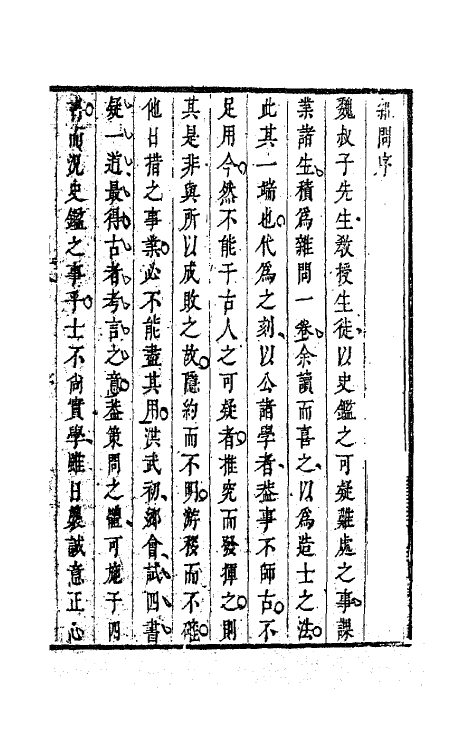 雜問序
魏叔子先生教授生徒以史鑑之可疑難處之事課
業諸生積為雜問一卷余讀而喜之以為造士之法
此其一端也代為之刻以公諸學者葢事不師古不
足用今然不能于古人之可疑者推究而發揮之則
其是非與所以成敗之故隱約而不明游移而不確
他日措之事業必不能盡其用洪武初鄉會試四書
疑一道最得古者考言之意葢策問之體可施于四
書而況史鑑之事乎士不尚實學雖日襲誠意正心